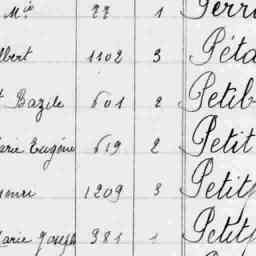 Mie 22 1 Perr
lbert 1102 3 Péta
t Bazile 601 2 Petib
arie Eugénie 619 2 Petit
enri 1209 3 Petitj
Marie Joseph 381 1 Petitj